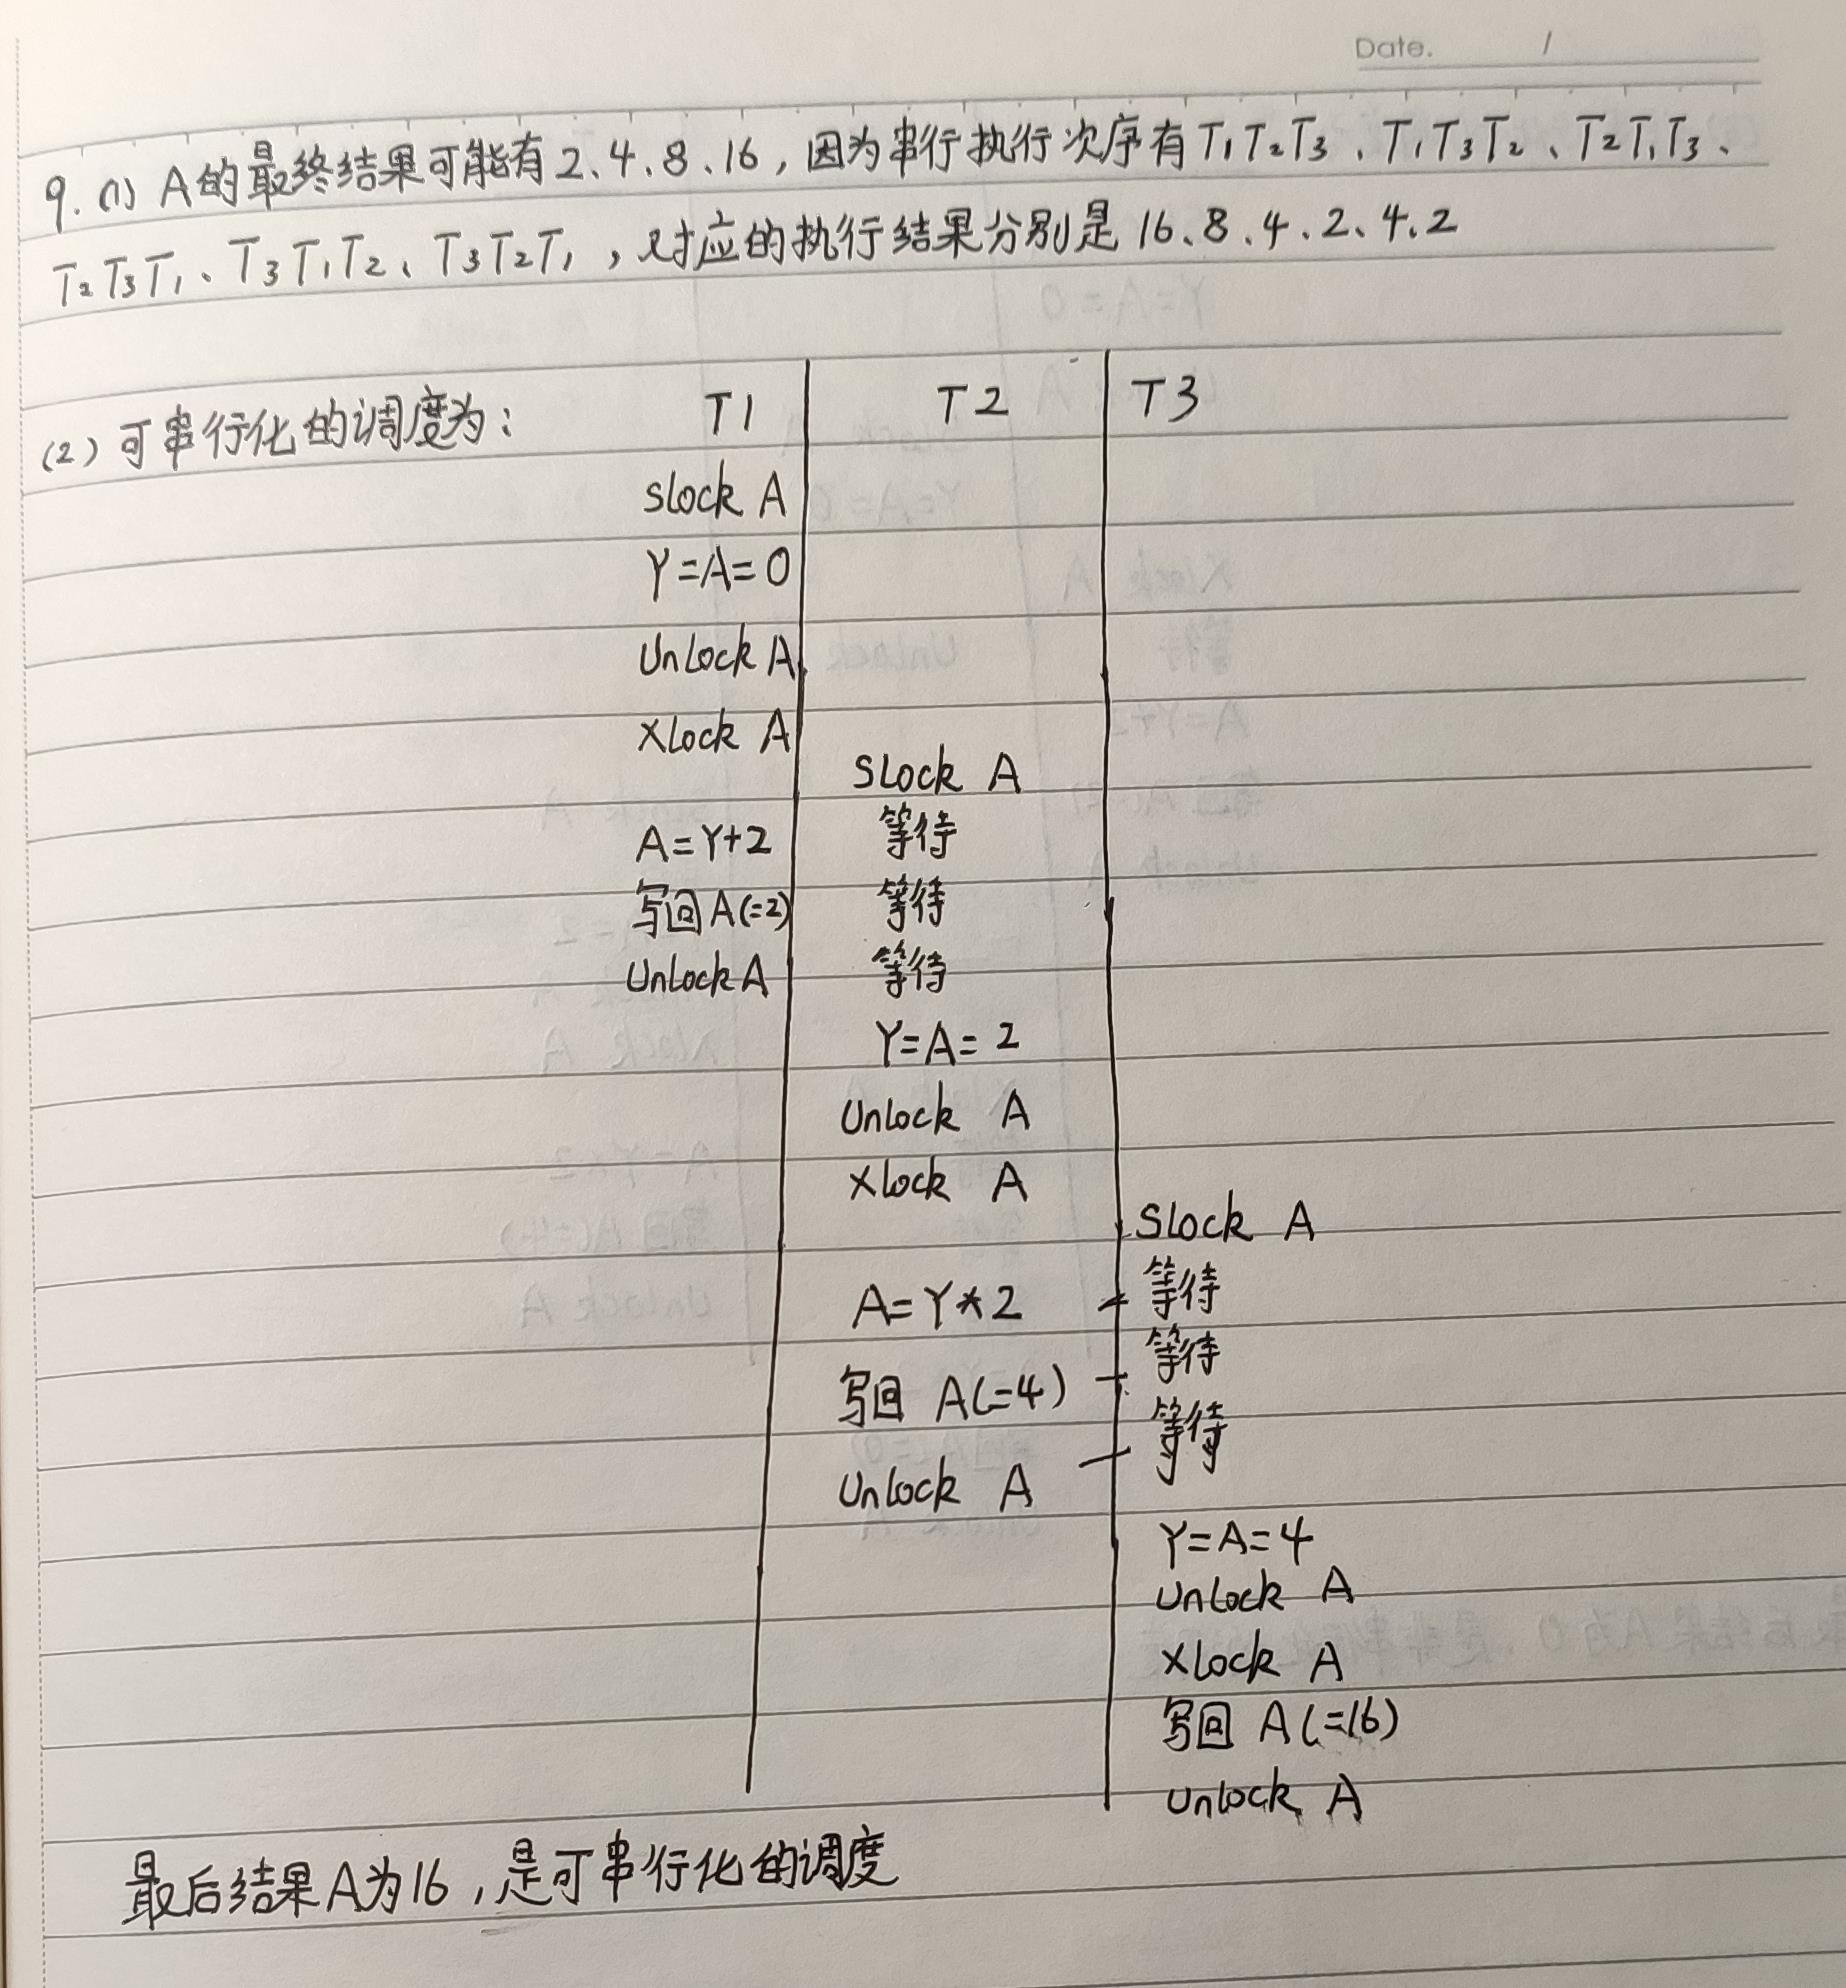 Date. /
9. (1) A的最终结果可能有2、4、8、16，因为串行执行次序有T₁T₂T₃、T₁T₃T₂、T₂T₁T₃、
T₂T₃T₁、T₃T₁T₂、T₃T₂T₁，对应的执行结果分别是16、8、4、2、4、2
(2) 可串行化的调度为： T1 T2 T3
Slock A
Y=A=0
Unlock A
Xlock A
SLock A
A=Y+2 等待
写回A(=2) 等待
UnLock A 等待
Y=A=2
Unlock A
Xlock A
SLock A
A=Y*2 等待
写回 A(=4) 等待
Unlock A 等待
Y=A=4
UnLock A
Xlock A
写回 A(=16)
Unlock A
最后结果A为16，是可串行化的调度